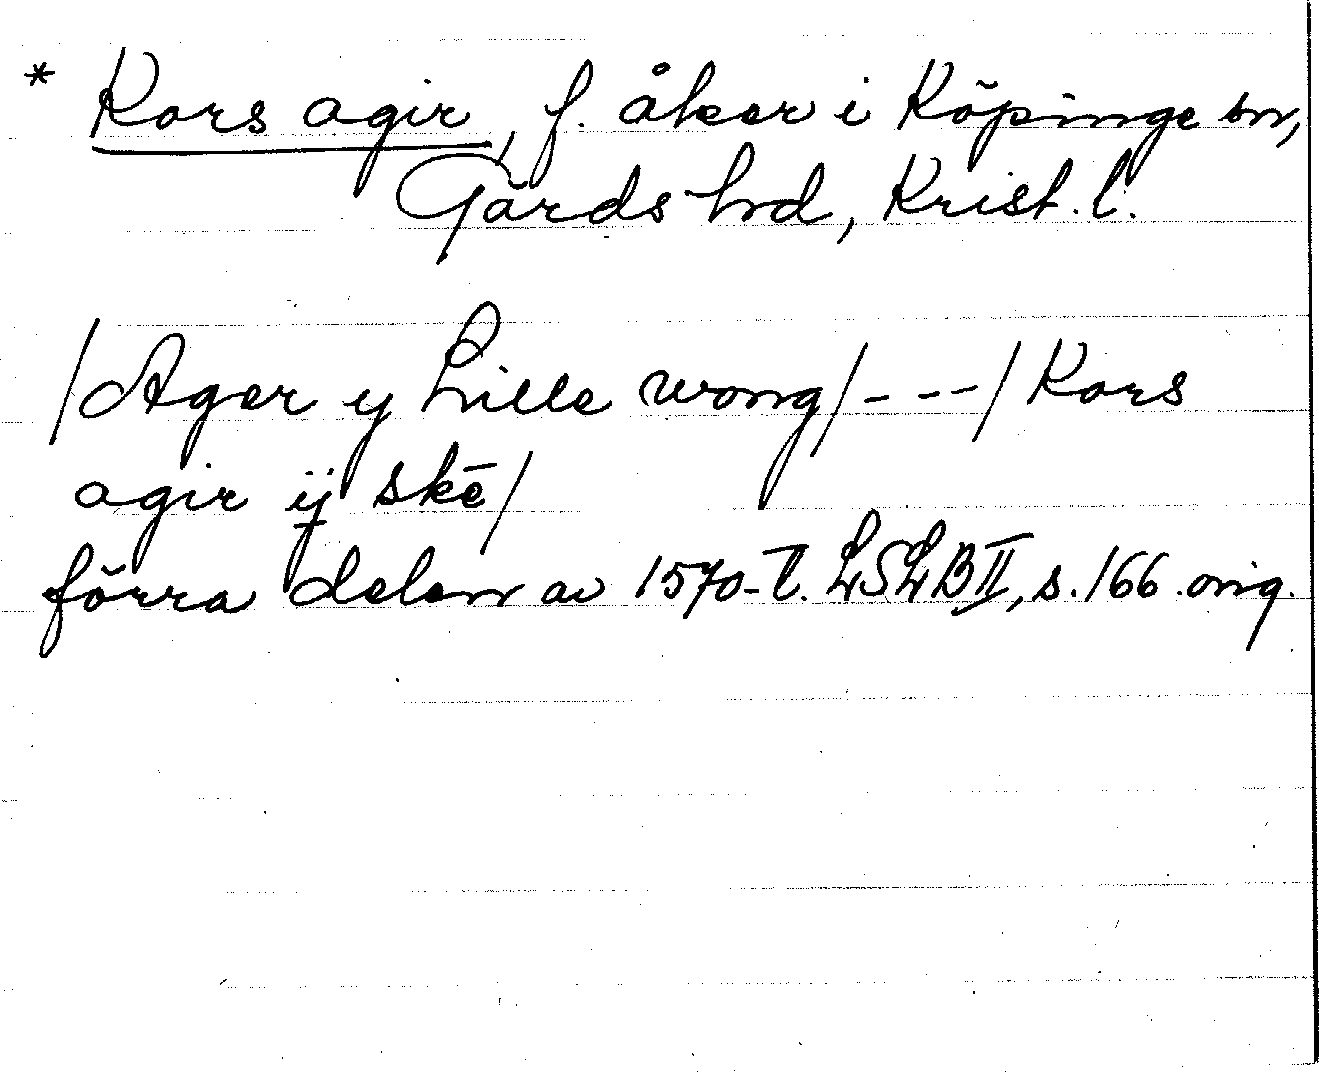 * Kors agir, f. åker i Köpinge sn,
Gärds hd, Krist. l.
/Ager y Lille wong/ - - - / Kors
agir ij skē/
förra delen av 1570-t. LSLB II, s. 166 orig.